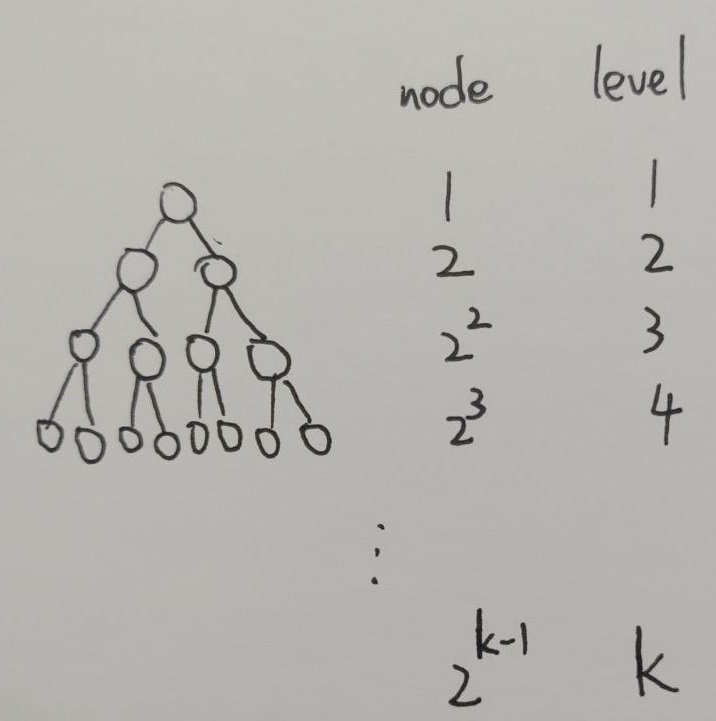 node level
1 1
2 2
2² 3
2³ 4
⋮
2^{k-1} k